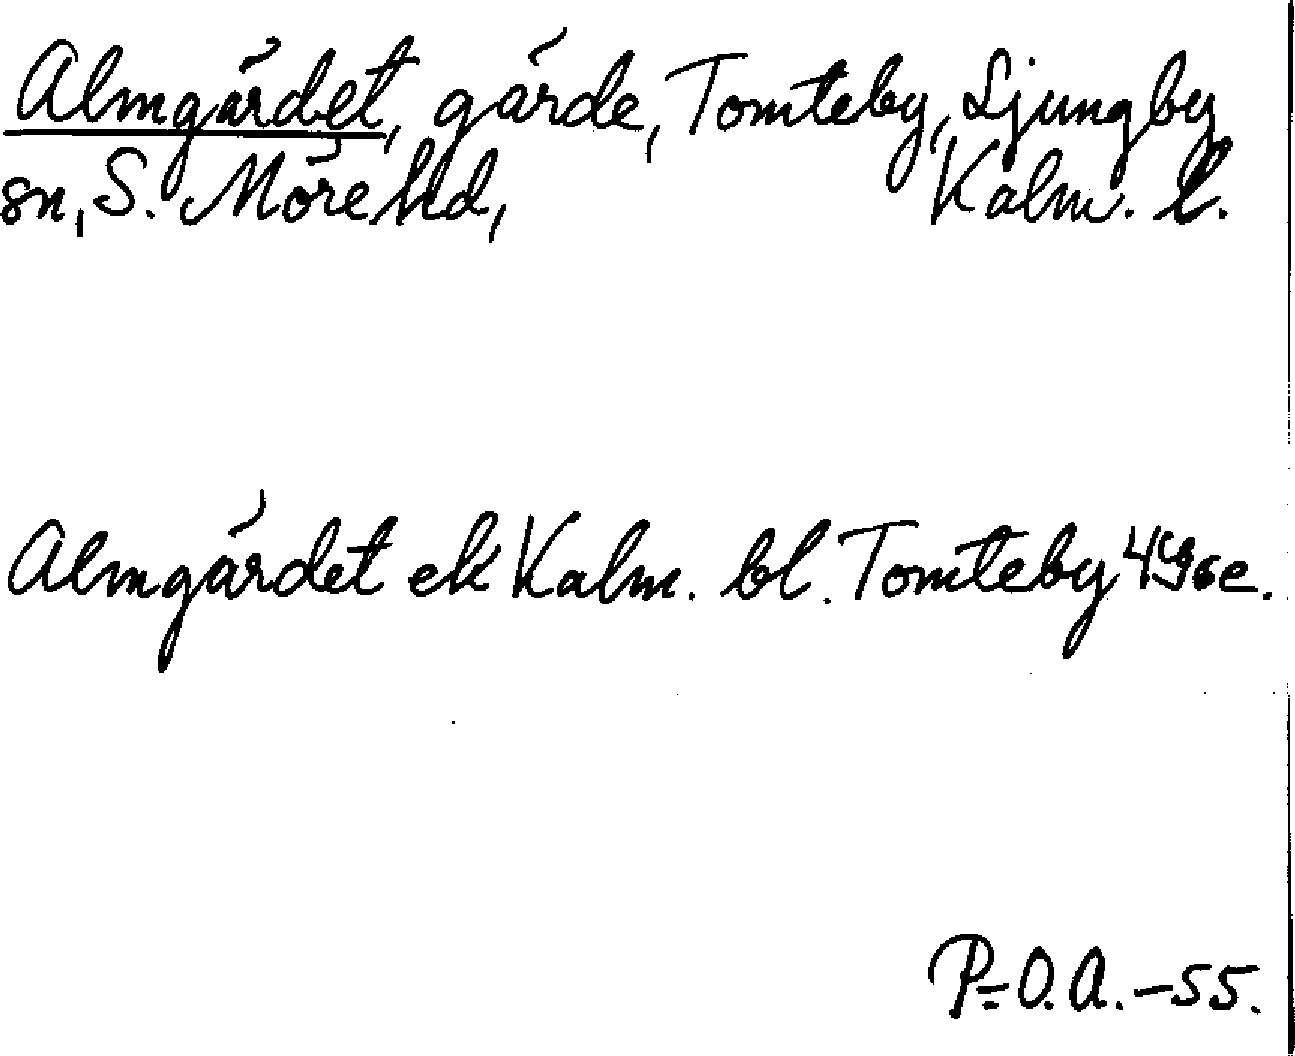 Almgärdet, gärde, Tomteby, Ljungby
sn, S. Möre hd, Kalm. l.
Almgärdet ek Kalm. bl. Tomteby 4 9se.
P-O.A.-55.